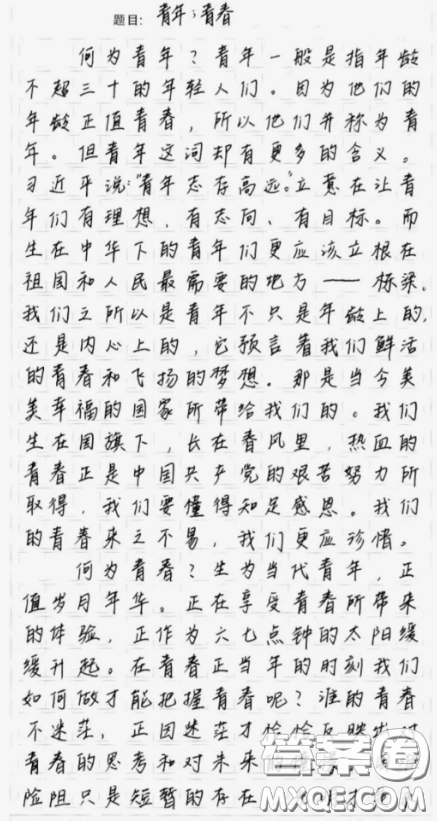 题目:青年;青春
何为青年?青年一般是指年龄
不超三十的年轻人们。因为他们的
年龄正值青春,所以他们并称为青
年。但青年这词却有更多的含义。
习近平说:"青年志存高远。"立意在让青
年们有理想,有志向、有目标。而
生在中华下的青年们更应该立根在
祖国和人民最需要的地方——栋梁。
我们之所以是青年不只是年龄上的,
还是内心上的,它预言着我们鲜活
的青春和飞扬的梦想。那是当今美
美幸福的国家所带给我们的。我们
生在国旗下,长在春风里,热血的
青春正是中国共产党的艰苦努力所
取得,我们要懂得知足感恩。我们
的青春来之不易,我们更应珍惜。
何为青春?生为当代青年,正
值岁月年华。正在享受青春所带来
的体验,正作为六七点钟的太阳缓
缓升起。在青春正当年的时刻我们
如何做才能把握青春呢?谁的青春
不迷茫,正因迷茫才恰恰反映出对
青春的思考和对未来
险阻只是短暂的存在
答案圈
MXQE.COM